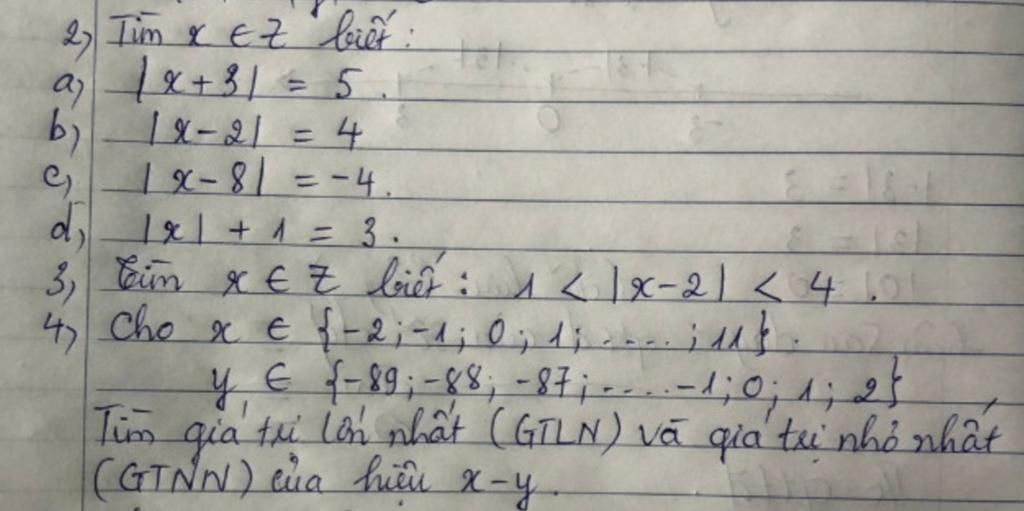 2) Tìm x ∈ Z biết:
a) |x+3| = 5.
b) |x-2| = 4
c) |x-8| = -4.
d) |x| + 1 = 3.
3) Tìm x ∈ Z biết: 1 < |x-2| < 4.
4) Cho x ∈ {-2; -1; 0; 1; .....; 11}.
y ∈ {-89; -88; -87; .... -1; 0; 1; 2}
Tìm giá trị lớn nhất (GTLN) và giá trị nhỏ nhất
(GTNN) của hiệu x-y.